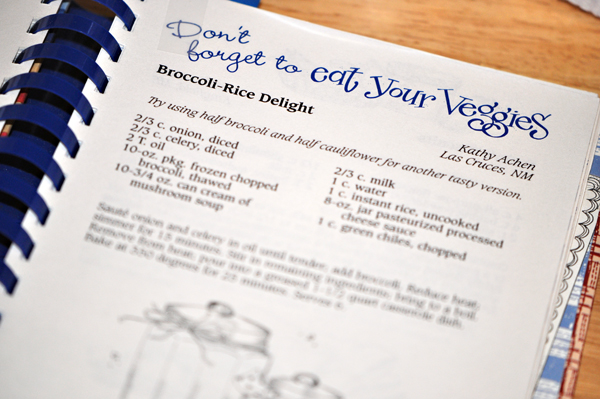 Don't
forget to eat your Veggies
Broccoli-Rice Delight
Kathy Achen
Las Cruces, NM
Try using half broccoli and half cauliflower for another tasty version.
2/3 c. onion, diced
2/3 c. celery, diced
2 T. oil
10-oz. pkg. frozen chopped
broccoli, thawed
10-3/4 oz. can cream of
mushroom soup
2/3 c. milk
1 c. water
1 c. instant rice, uncooked
8-oz. jar pasteurized processed
cheese sauce
1 c. green chiles, chopped
Sauté onion and celery in oil until tender; add broccoli. Reduce heat;
simmer for 15 minutes. Stir in remaining ingredients; bring to a boil.
Remove from heat; pour into a greased 1-1/2 quart casserole dish.
Bake at 350 degrees for 25 minutes. Serves